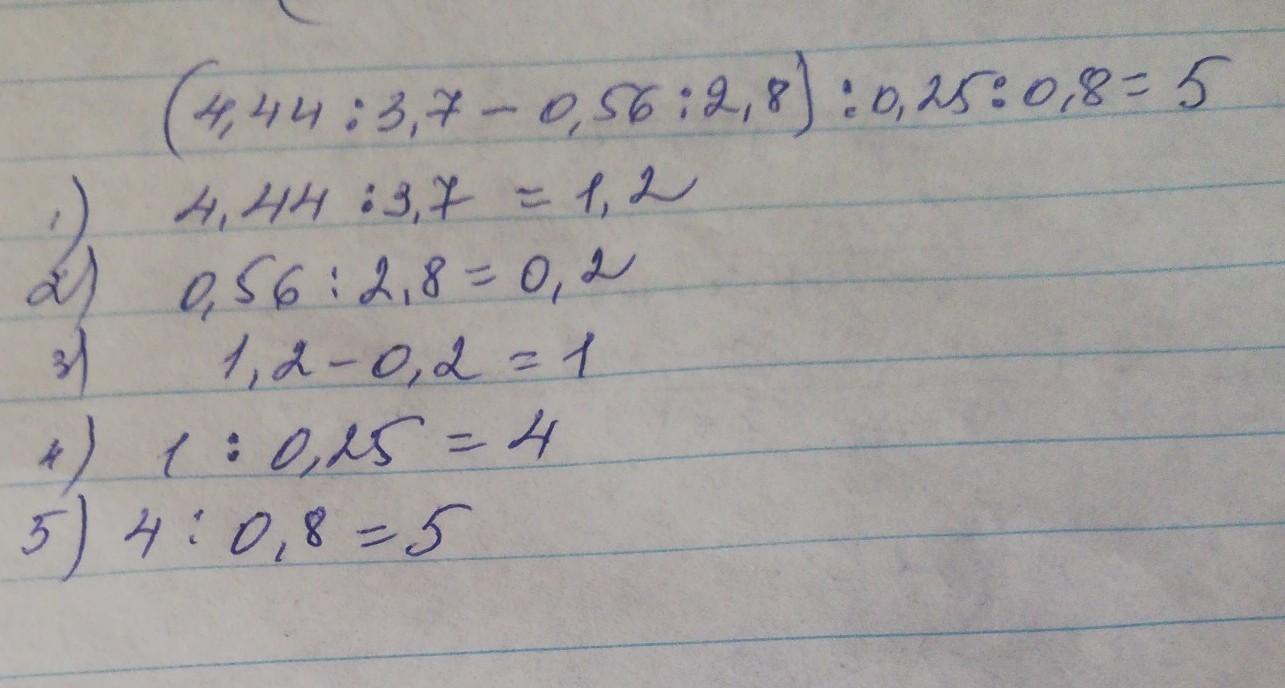 (4,44 : 3,7 - 0,56 : 2,8) : 0,25 : 0,8 = 5
1) 4,44 : 3,7 = 1,2
2) 0,56 : 2,8 = 0,2
3) 1,2 - 0,2 = 1
4) 1 : 0,25 = 4
5) 4 : 0,8 = 5